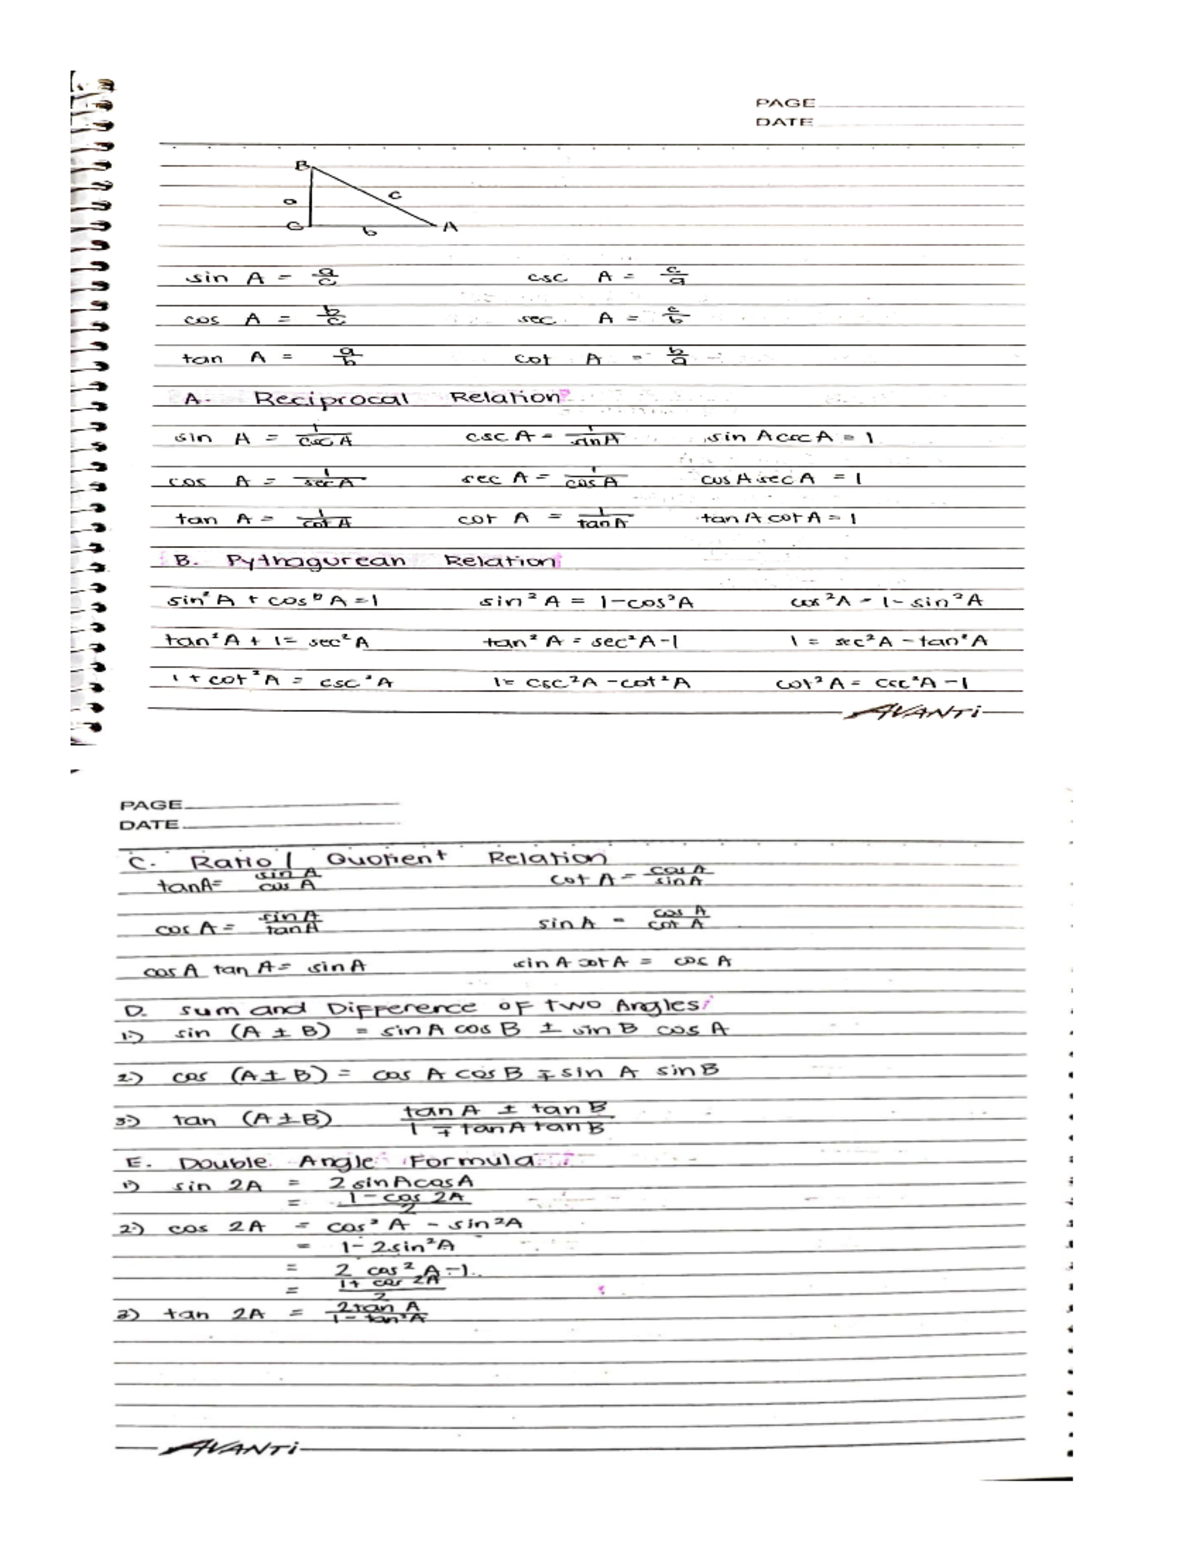 PAGE
DATE
B
a c
C b A
sin A = a/c csc A = c/a
cos A = b/c sec A = c/b
tan A = a/b cot A = b/a
A. Reciprocal Relation
sin A = 1/csc A csc A = 1/sin A sin A csc A = 1
cos A = 1/sec A sec A = 1/cos A cos A sec A = 1
tan A = 1/cot A cot A = 1/tan A tan A cot A = 1
B. Pythagurean Relation
sin² A + cos² A = 1 sin² A = 1 - cos² A cos² A = 1 - sin² A
tan² A + 1 = sec² A tan² A = sec² A - 1 1 = sec² A - tan² A
1 + cot² A = csc² A 1 = csc² A - cot² A cot² A = csc² A - 1
AVANTi
PAGE
DATE
C. Ratio / Quotient Relation
tan A = sin A/cos A cot A = cos A/sin A
cos A = sin A/tan A sin A = cos A/cot A
cos A tan A = sin A sin A cot A = cos A
D. Sum and Difference of Two Angles
1.) sin (A ± B) = sin A cos B ± sin B cos A
2.) cos (A ± B) = cos A cos B ∓ sin A sin B
3.) tan (A ± B) tan A ± tan B/1 ∓ tan A tan B
E. Double Angle Formula
1) sin 2A = 2 sin A cos A
= 1 - cos 2A/2
2.) cos 2A = cos² A - sin² A
= 1 - 2 sin² A
= 2 cos² A - 1
= 1 + cos 2A/2
3) tan 2A = 2 tan A/1 - tan² A
AVANTi